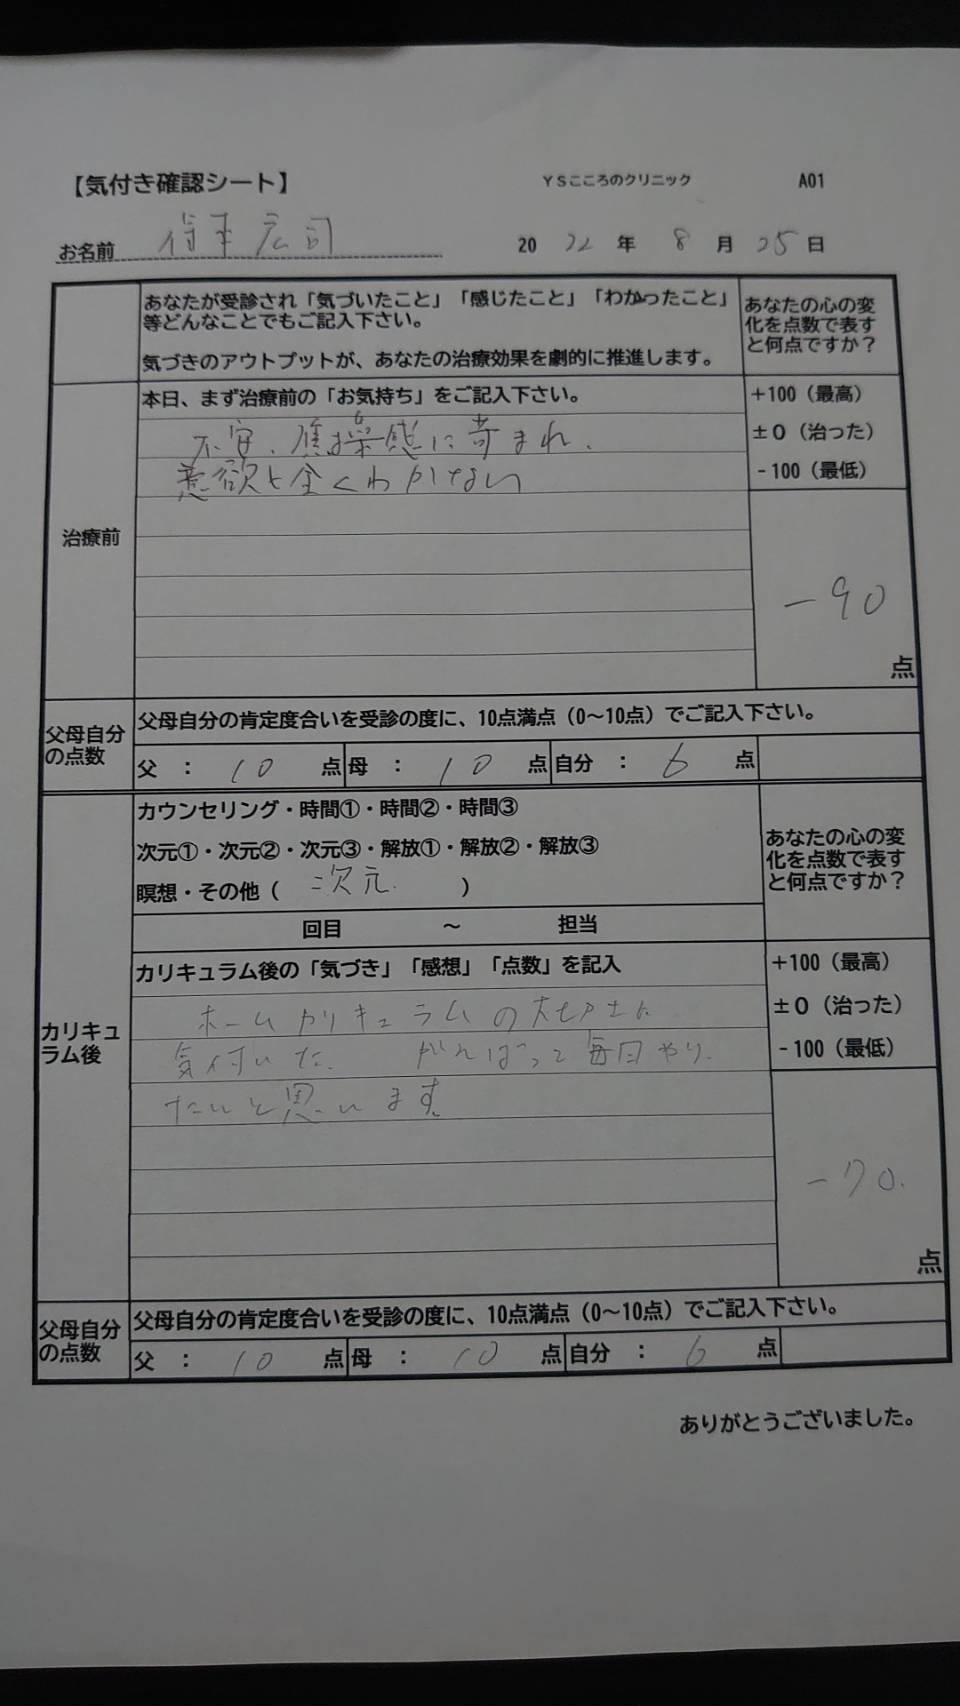 【気付き確認シート】 YSこころのクリニック A01
お名前 宏司 2022年8月25日
あなたが受診され「気づいたこと」「感じたこと」「わかったこと」
等どんなことでもご記入下さい。
気づきのアウトプットが、あなたの治療効果を劇的に推進します。
あなたの心の変
化を点数で表す
と何点ですか？
治療前
本日、まず治療前の「お気持ち」をご記入下さい。
不安、焦操感に苛まれ、
意欲も全くわかない
+100（最高）
±0（治った）
-100（最低）
-90
点
父母自分
の点数
父母自分の肯定度合いを受診の度に、10点満点（0〜10点）でご記入下さい。
父：10点 母：10点 自分：6点
カリキュ
ラム後
カウンセリング・時間①・時間②・時間③
次元①・次元②・次元③・解放①・解放②・解放③
瞑想・その他（ 二次元 ）
回目 〜 担当
あなたの心の変
化を点数で表す
と何点ですか？
カリキュラム後の「気づき」「感想」「点数」を記入
ホームカリキュラムの大切さに
気付いた。がんばって毎日やり
たいと思います
+100（最高）
±0（治った）
-100（最低）
-70.
点
父母自分
の点数
父母自分の肯定度合いを受診の度に、10点満点（0〜10点）でご記入下さい。
父：10点 母：10点 自分：6点
ありがとうございました。